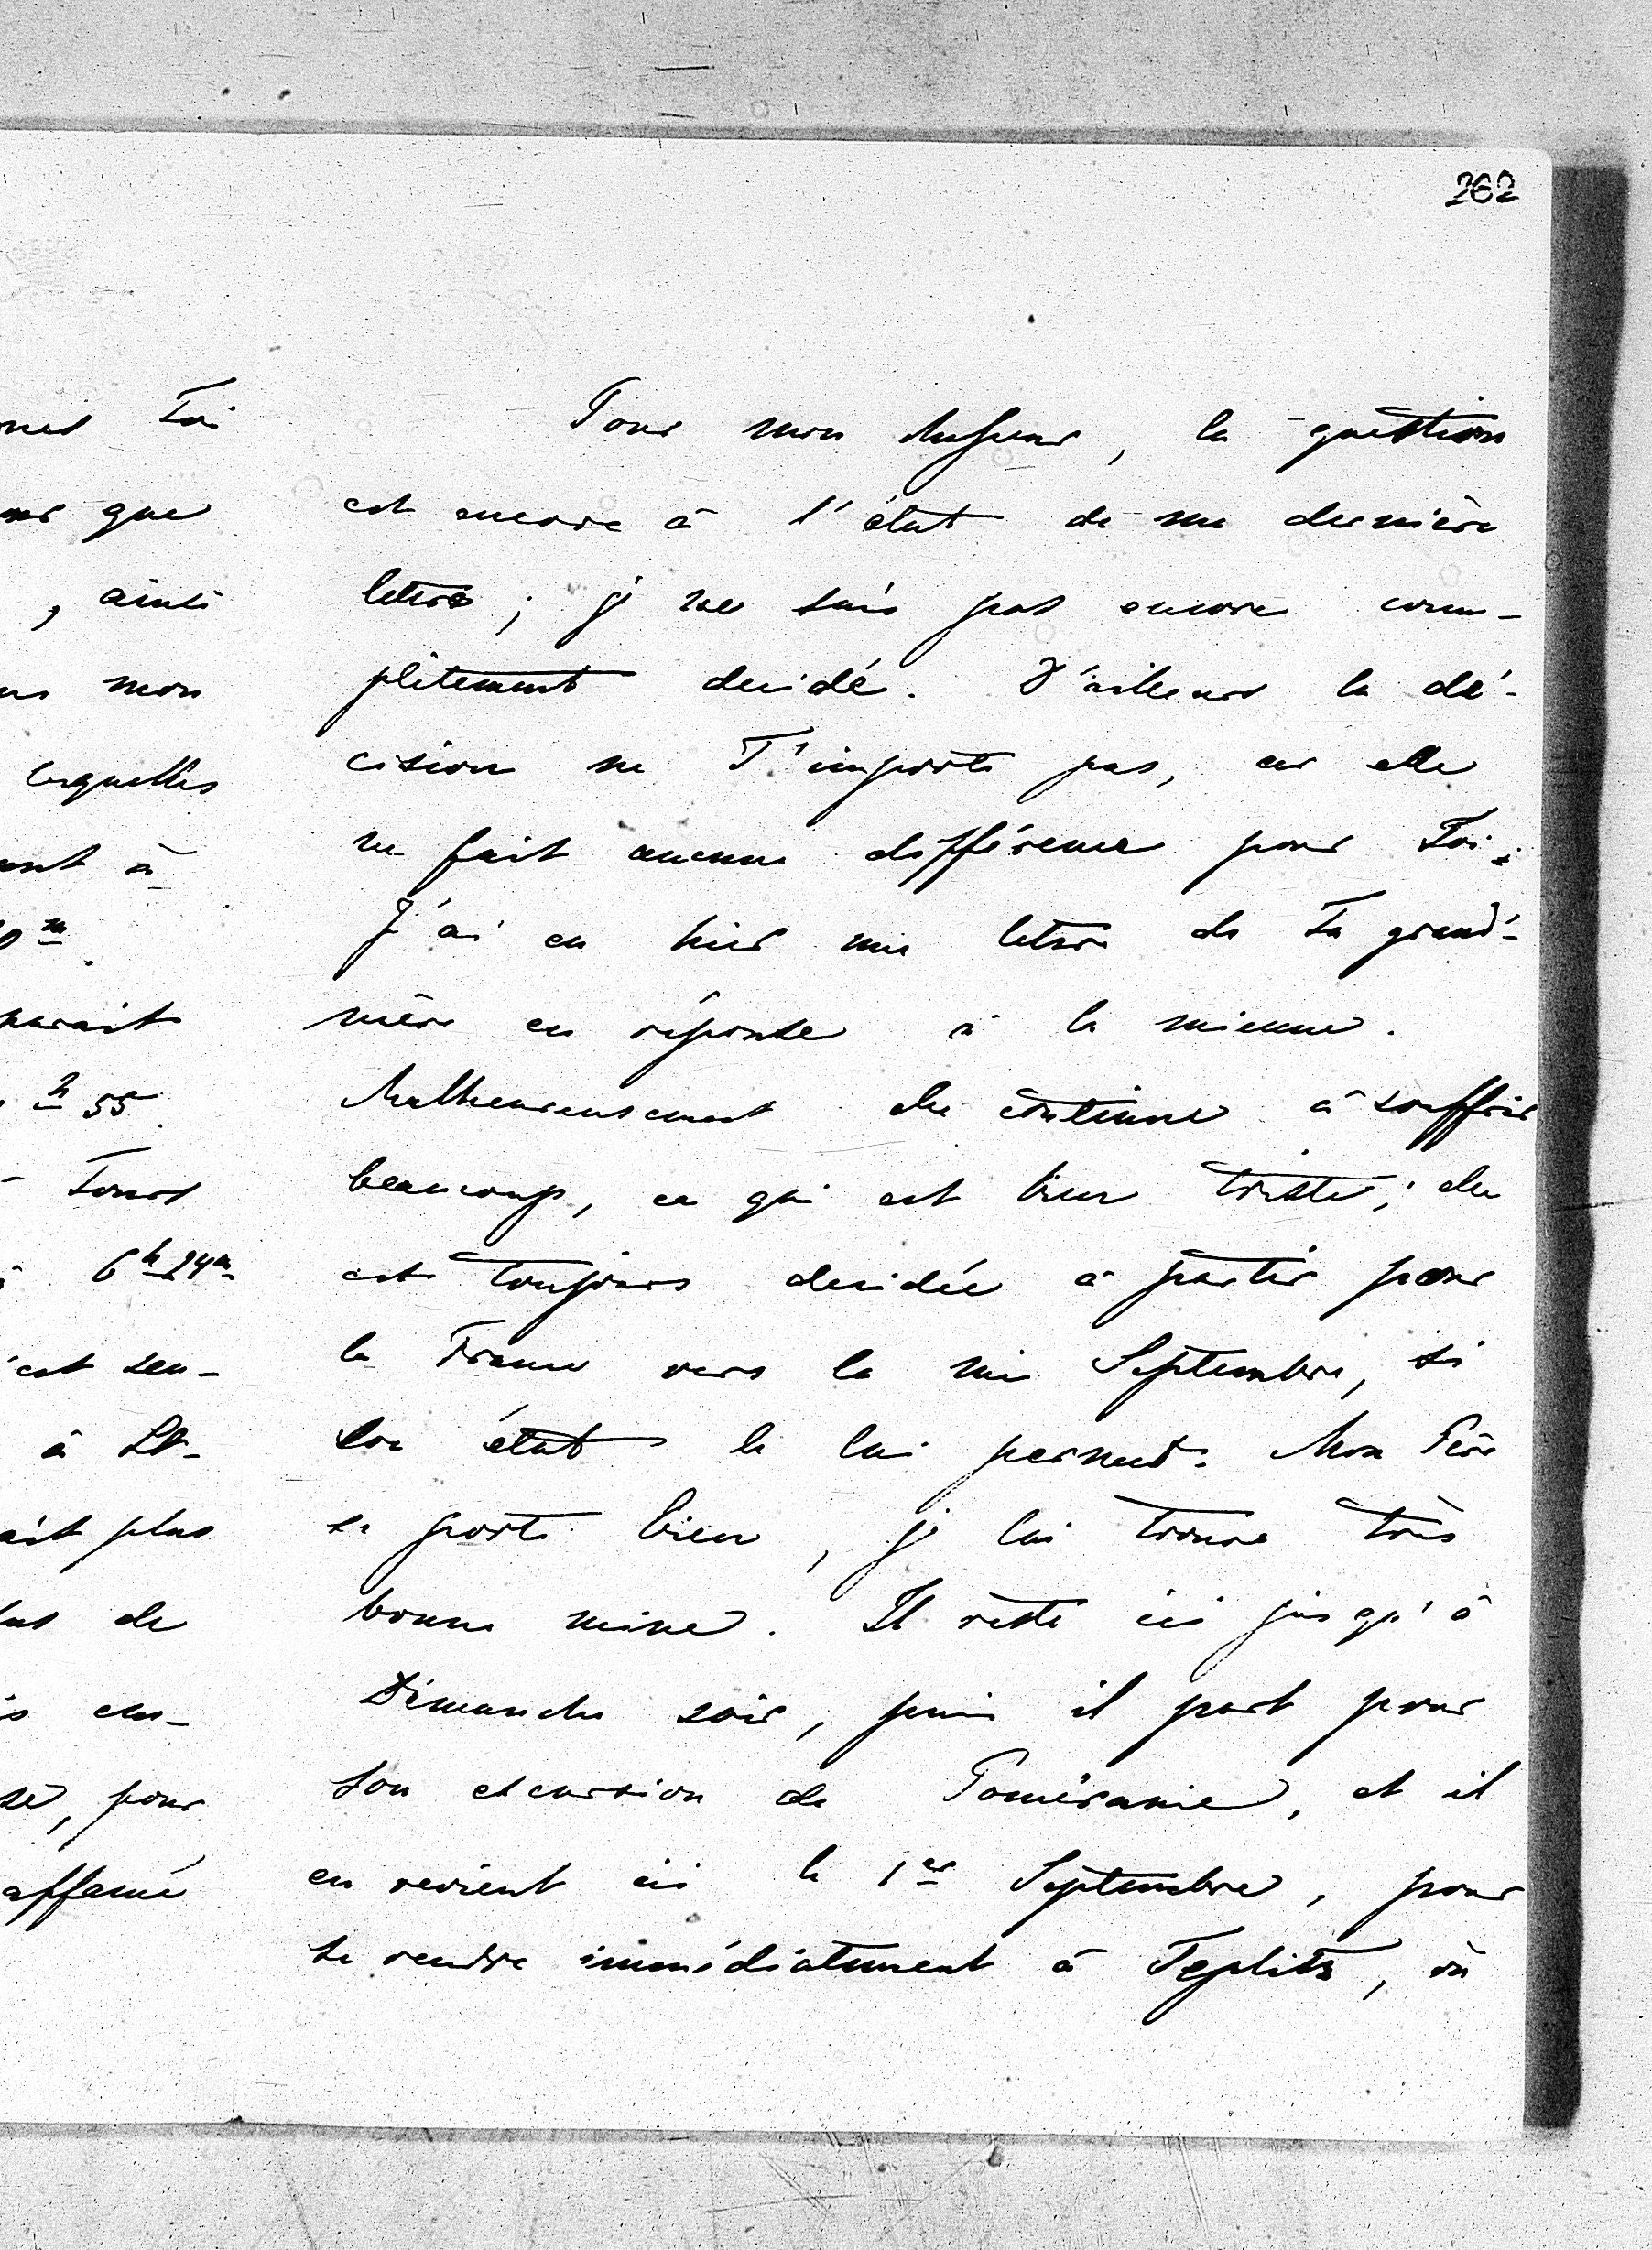 262
Pour mon chasseur, la question
est encore à l'état de ma dernière
lettre ; je ne suis pas encore com-
plètement décidé. D'ailleurs la dé-
cision ne T'importe pas, car elle
ne fait aucune différence pour Toi.
J'ai eu hier une lettre de Ta grand'-
mère en réponse à la mienne.
Malheureusement elle continue à souffrir
beaucoup, ce qui est bien triste ; elle
est toujours décidée à partir pour
la France vers la mi Septembre, si
son état le lui permet. Mon Père
se porte bien, je lui trouve très
bonne mine. Il reste ici jusqu'à
Dimanche soir, puis il part pour
son excursion de Poméranie, et il
en revient ici le 1er Septembre, pour
se rendre immédiatement à Teplitz, où
Toi
que
, ainsi
mon
lesquelles
à
m
parait
h 55
Tours
6h 24m
est seu-
à St-
plus
de
en-
, pour
affamé